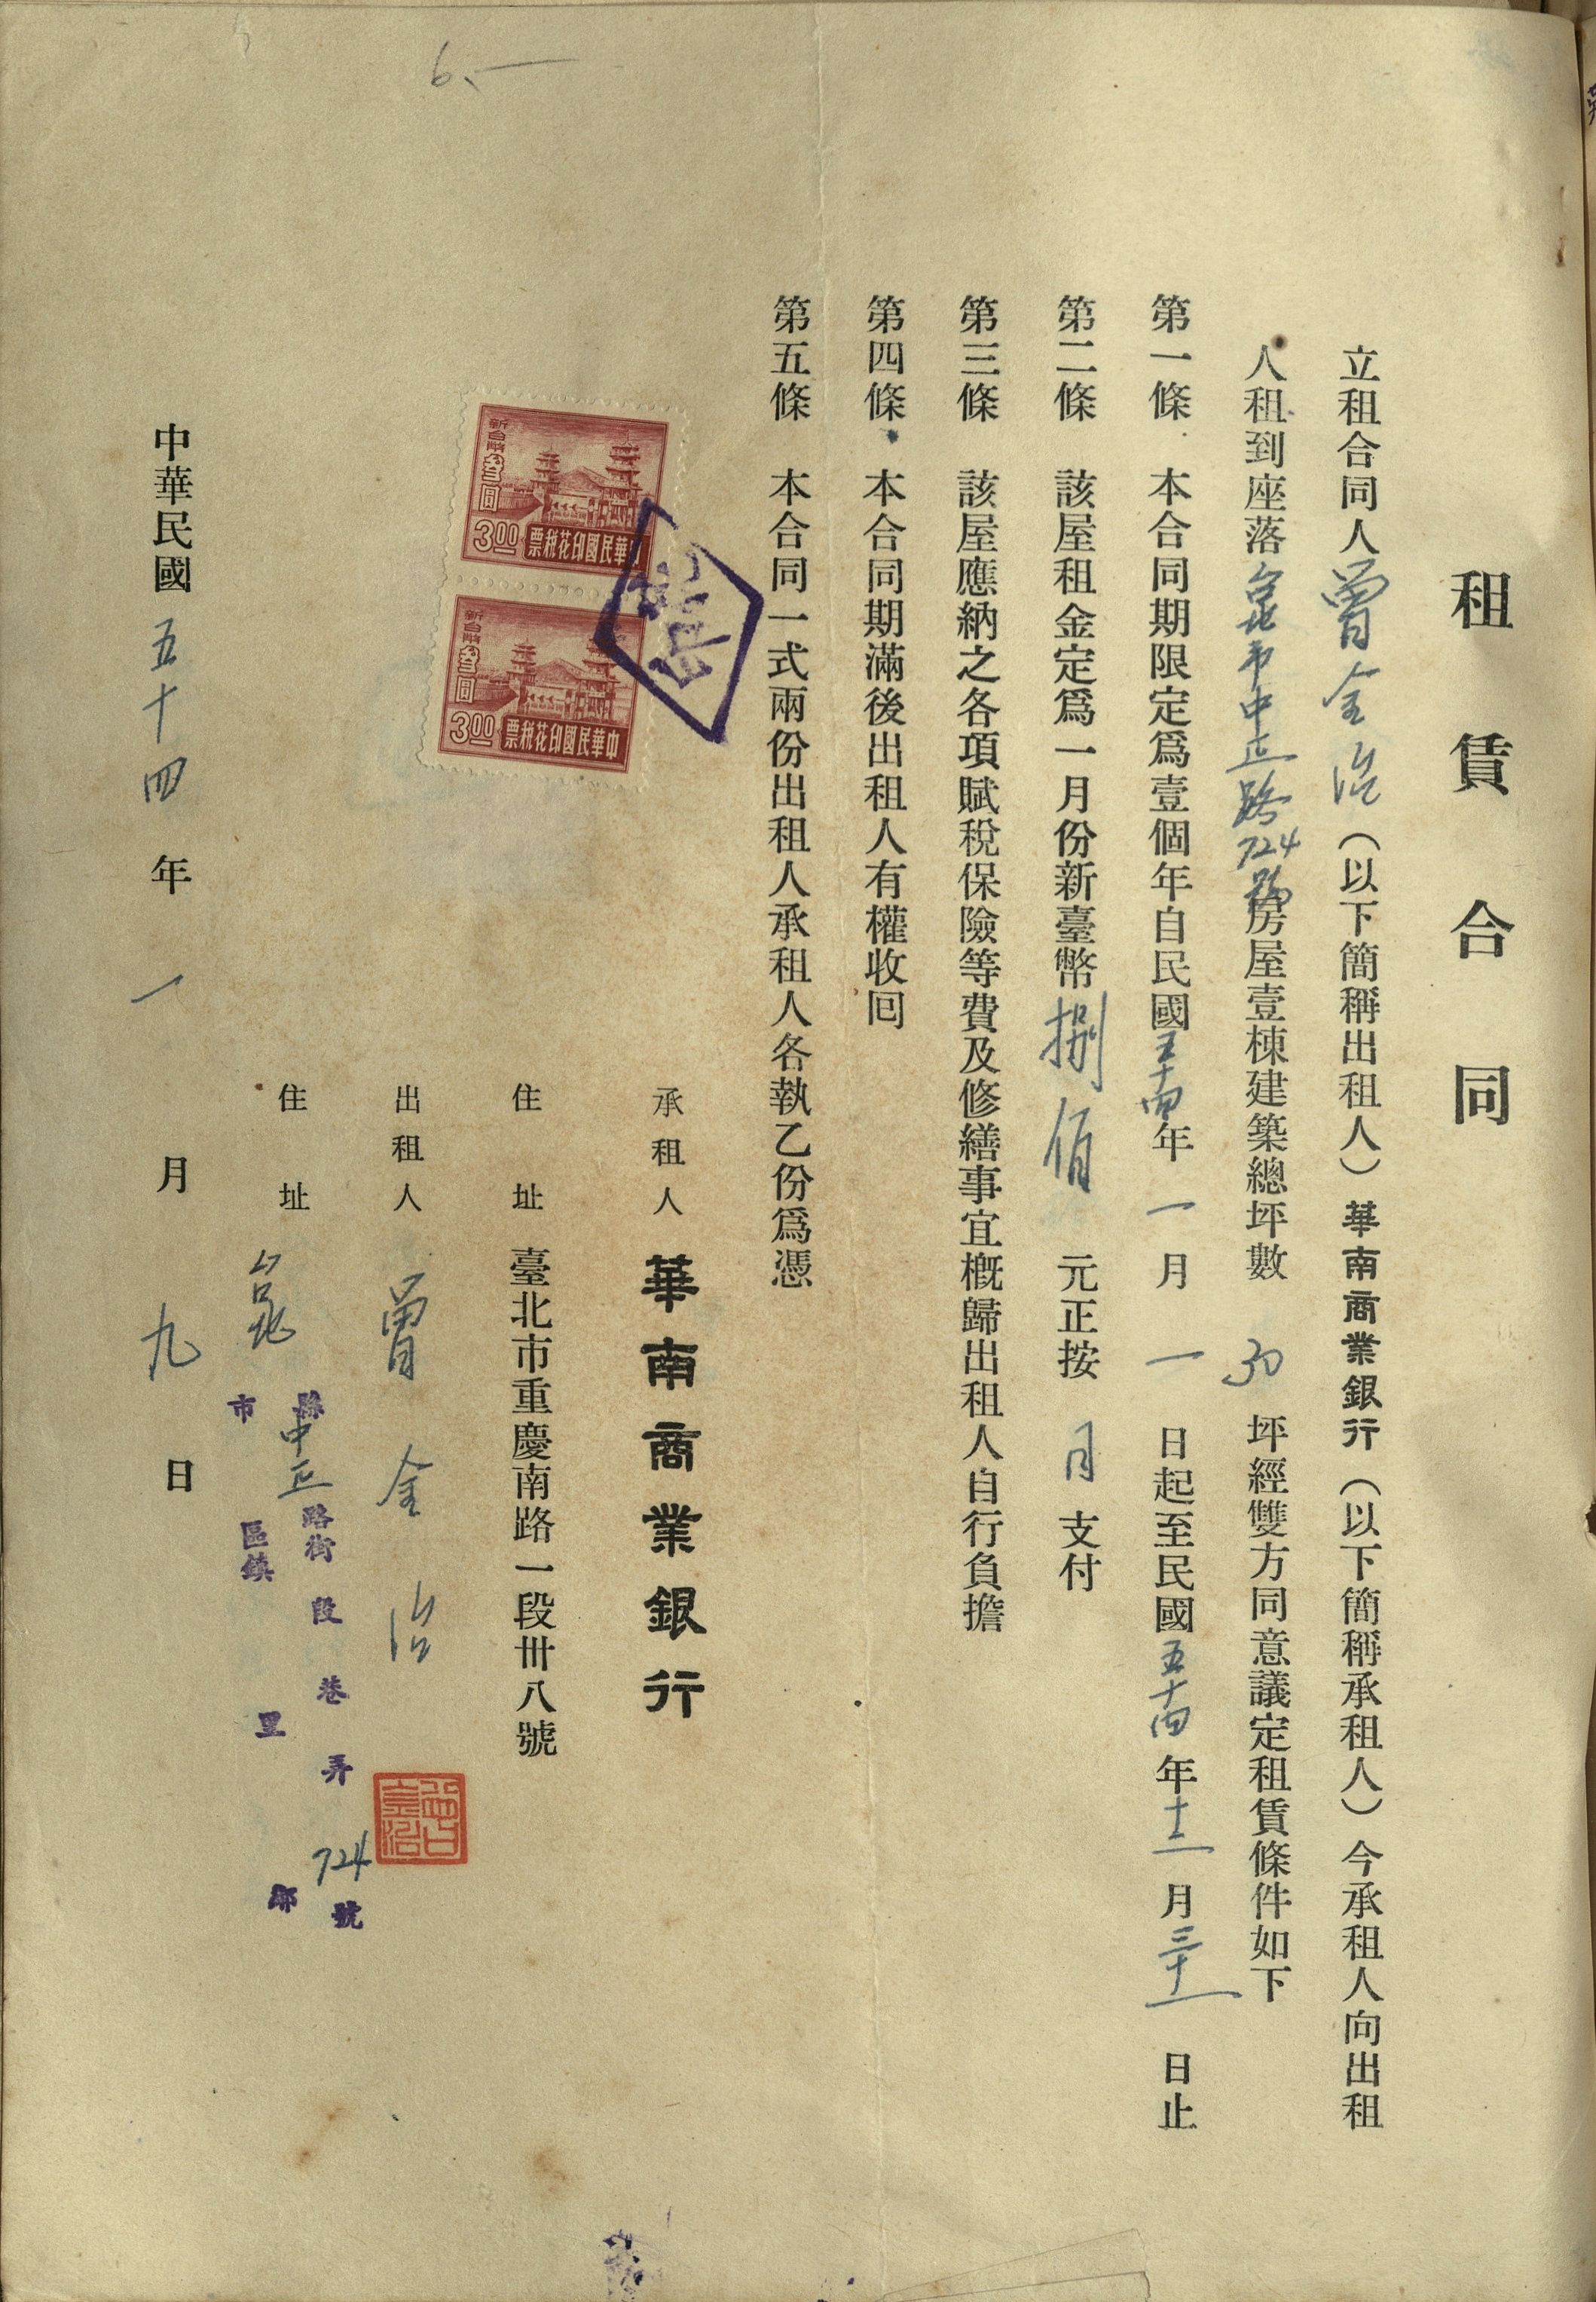 租賃合同
立租合同人曾金治（以下簡稱出租人）華南商業銀行（以下簡稱承租人）今承租人向出租
人租到座落 市中正路724號房屋壹棟建築總坪數30坪經雙方同意議定租賃條件如下
第一條 本合同期限定爲壹個年自民國五十四年一月一日起至民國五十四年十二月三十一日止
第二條 該屋租金定爲一月份新臺幣捌佰元正按月支付
第三條 該屋應納之各項賦稅保險等費及修繕事宜概歸出租人自行負擔
第四條 本合同期滿後出租人有權收囘
第五條 本合同一式兩份出租人承租人各執乙份爲憑
承租人 華南商業銀行
住址 臺北市重慶南路一段卅八號
出租人 曾金治
住址 縣市 中正 路街 區鎮 段 巷 里 弄 724 號 鄰
中華民國五十四年一月九日
6.—
新台幣叁圓
3.00
中華民國印花稅票
新台幣叁圓
3.00
中華民國印花稅票